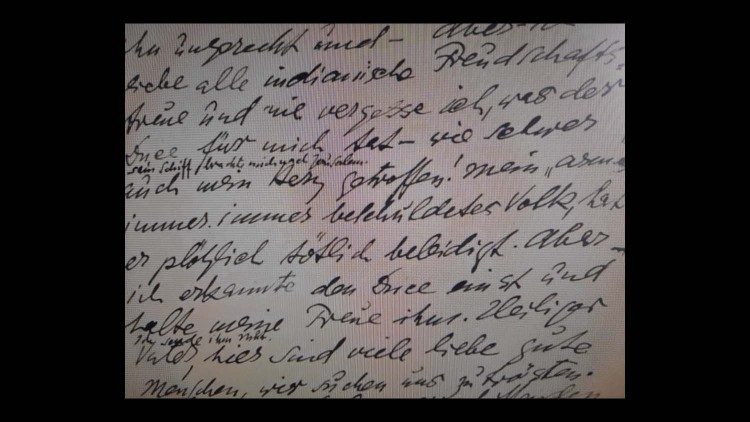 ungerecht und – Aber
liebe alle indianische Freundschafts-
treue und nie vergesse ich, was der
Duce für mich tat – wie schwer
sein Schiff brachte mich nach Jerusalem.
auch mein Herz getroffen! Mein „armes
immer, immer beschuldetes Volk, hat
er plötzlich tötlich beleidigt. Aber –
ich erkannte den Duce einst und
halte meine Treue ihm. Heiliger
Vater, hier sind viele liebe gute
Menschen, wir suchen uns zu trösten.